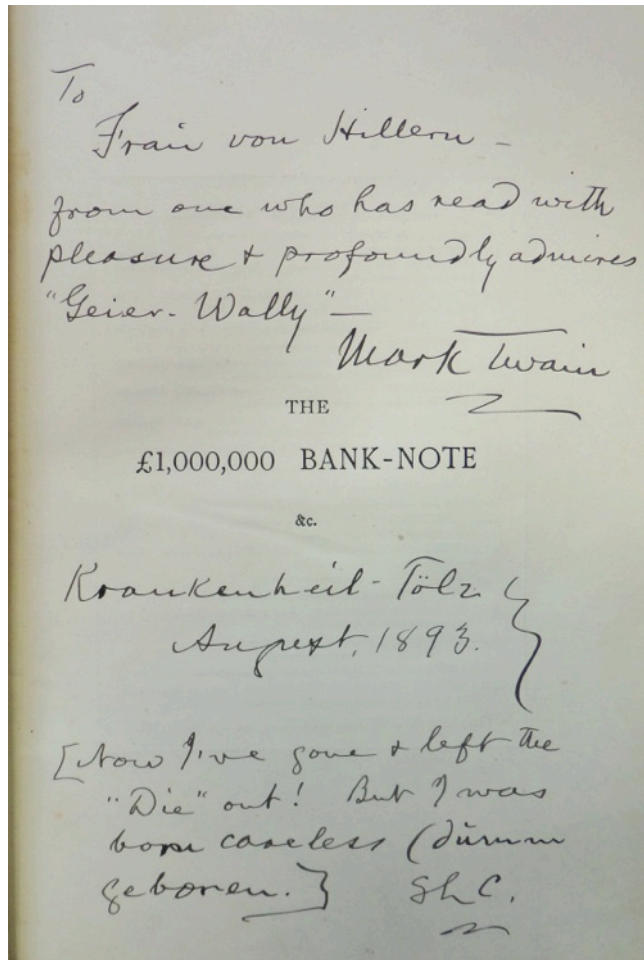 To
Frau von Hillern –
from one who has read with
pleasure & profoundly admires
"Geier-Wally" –
Mark Twain
THE
£1,000,000 BANK-NOTE
&c.
Krankenheil-Tölz
August, 1893.
[Now I've gone & left the
"Die" out! But I was
born careless (dumm
geboren.]
SLC.